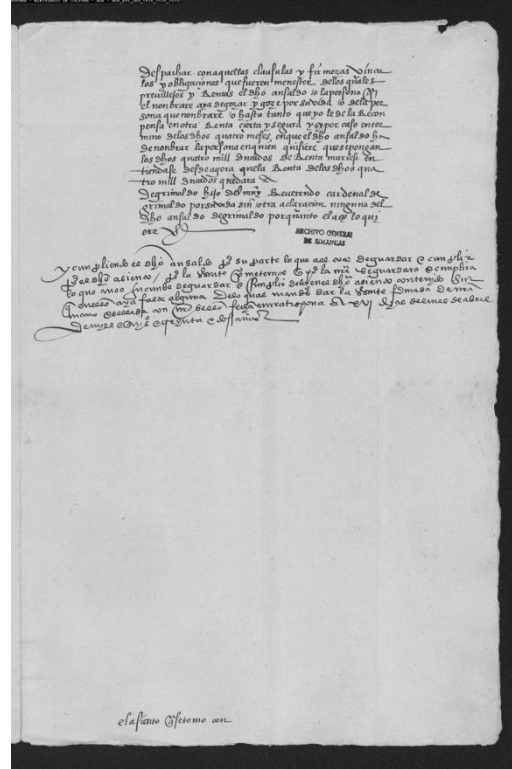 despachar con aquellas clausulas y firmezas vincu
los y obligaciones que fueren menester delos quales
previllejos y Rentas el dho ansaldo io la persona q̃
el nonbrare aya de gozar y goze por su vida io dela per
sona que nonbrare io hasta tanto que yo le de la Recon
pensa en otra Renta cierta y segura y sy por caso en ter
mino delos dhos quatro meses en que el dho ansaldo ha
de nonbrar la persona en quien quisiere que se pongan
los dhos quatro mill ducados de Renta muriese en
tiendase desde agora que la Renta delos dhos qua
tro mill ducados quedara a
de grimaldo hijo del muy Reverendo cardenal de
grimaldo por su vida sin otra aclaracion ninguna del
dho ansaldo de grimaldo por quanto el a lo qui
ere
ARCHIVO GENERAL
DE SIMANCAS
y cunpliendo el dho ansaldo por su parte lo que a el de guardar e cunplir
por el dho asiento por la presente prometemos que se guardara e cunplira
lo que a nos incumbe de guardar e cunplir del dho asiento contenydo sin
que en ello aya falta alguna delo qual mande dar la presente firmada de mi
mano e sellada con sello fecha en ratisbona a XVI dias del mes de abrill
de myll e quis e treynta e dos años
el asiento q̃ se tomo con